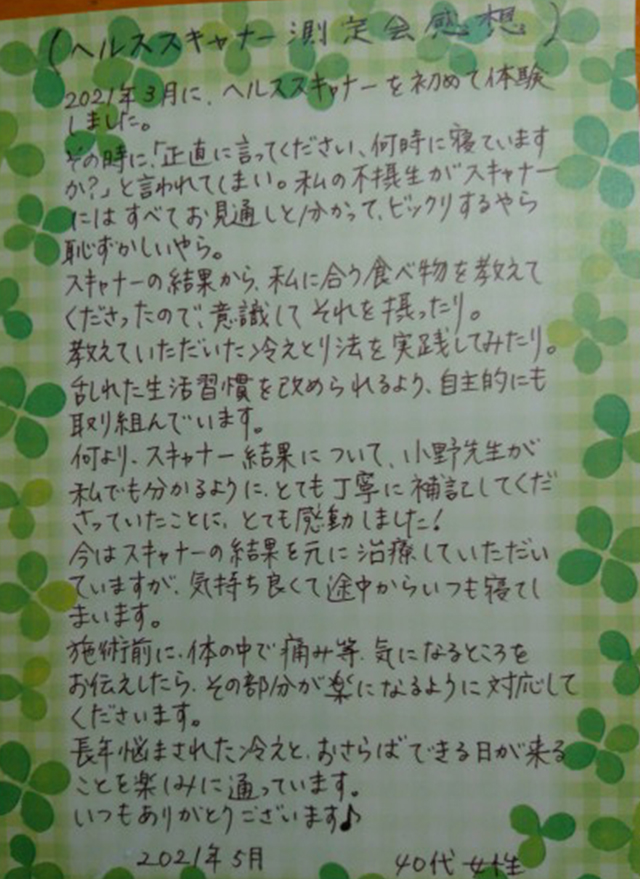 (ヘルススキャナー測定会感想)
2021年3月に、ヘルススキャナーを初めて体験
しました。
その時に、「正直に言ってください、何時に寝ています
か?」と言われてしまい。私の不摂生がスキャナー
にはすべてお見通しと分かって、ビックリするやら
恥ずかしいやら。
スキャナーの結果から、私に合う食べ物を教えて
くださったので、意識してそれを摂ったり。
教えていただいた冷えとり法を実践してみたり。
乱れた生活習慣を改められるよう、自主的にも
取り組んでいます。
何より、スキャナー結果について、小野先生が
私でも分かるように、とても丁寧に補記してくだ
さっていたことに、とても感動しました!
今はスキャナーの結果を元に治療していただい
ていますが、気持ち良くて途中からいつも寝てし
まいます。
施術前に、体の中で痛み等、気になるところを
お伝えしたら、その部分が楽になるように対応して
くださいます。
長年悩まされた冷えと、おさらばできる日が来る
ことを楽しみに通っています。
いつもありがとうございます♪
2021年5月 40代 女性